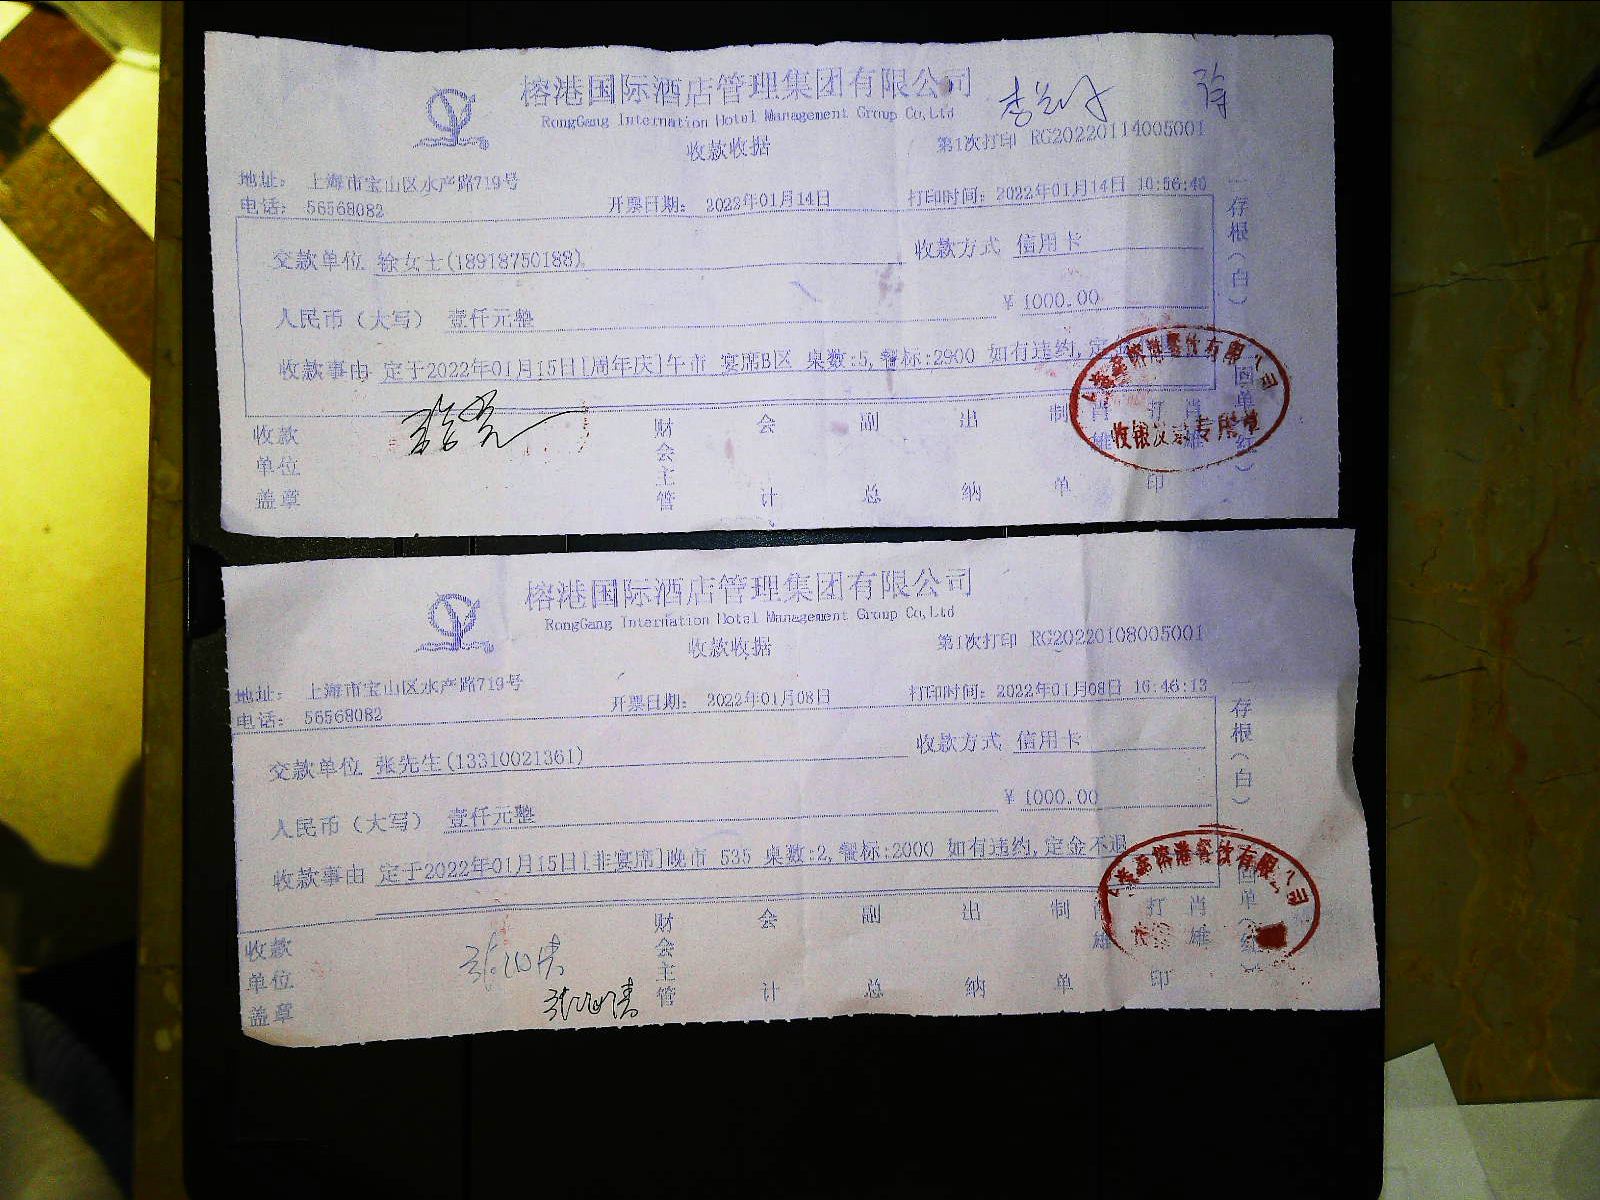 榕港国际酒店管理集团有限公司
RongGang Internation Hotel Management Group Co,Ltd
收款收据
第1次打印 RG20220114005001
地址: 上海市宝山区水产路719号
电话: 56568082
开票日期: 2022年01月14日
打印时间: 2022年01月14日 10:56:40
交款单位 徐女士(18918750188)
收款方式 信用卡
人民币(大写) 壹仟元整
¥ 1000.00
收款事由 定于2022年01月15日[周年庆]午市 宴席B区 桌数:5,餐标:2900 如有违约,定
一存根(白)
回单(红)
收款单位盖章
财会主管
会计
副总
出纳
制单
肖雄
打印
肖雄
收银发票专用章
榕港国际酒店管理集团有限公司
RongGang Internation Hotel Management Group Co,Ltd
收款收据
第1次打印 RG20220108005001
地址: 上海市宝山区水产路719号
电话: 56568082
开票日期: 2022年01月08日
打印时间: 2022年01月08日 16:46:13
交款单位 张先生(13310021361)
收款方式 信用卡
人民币(大写) 壹仟元整
¥ 1000.00
收款事由 定于2022年01月15日[非宴席]晚市 535 桌数:2,餐标:2000 如有违约,定金不退
一存根(白)
回单(红)
收款单位盖章
财会主管
会计
副总
出纳
制单
肖雄
打印
肖雄